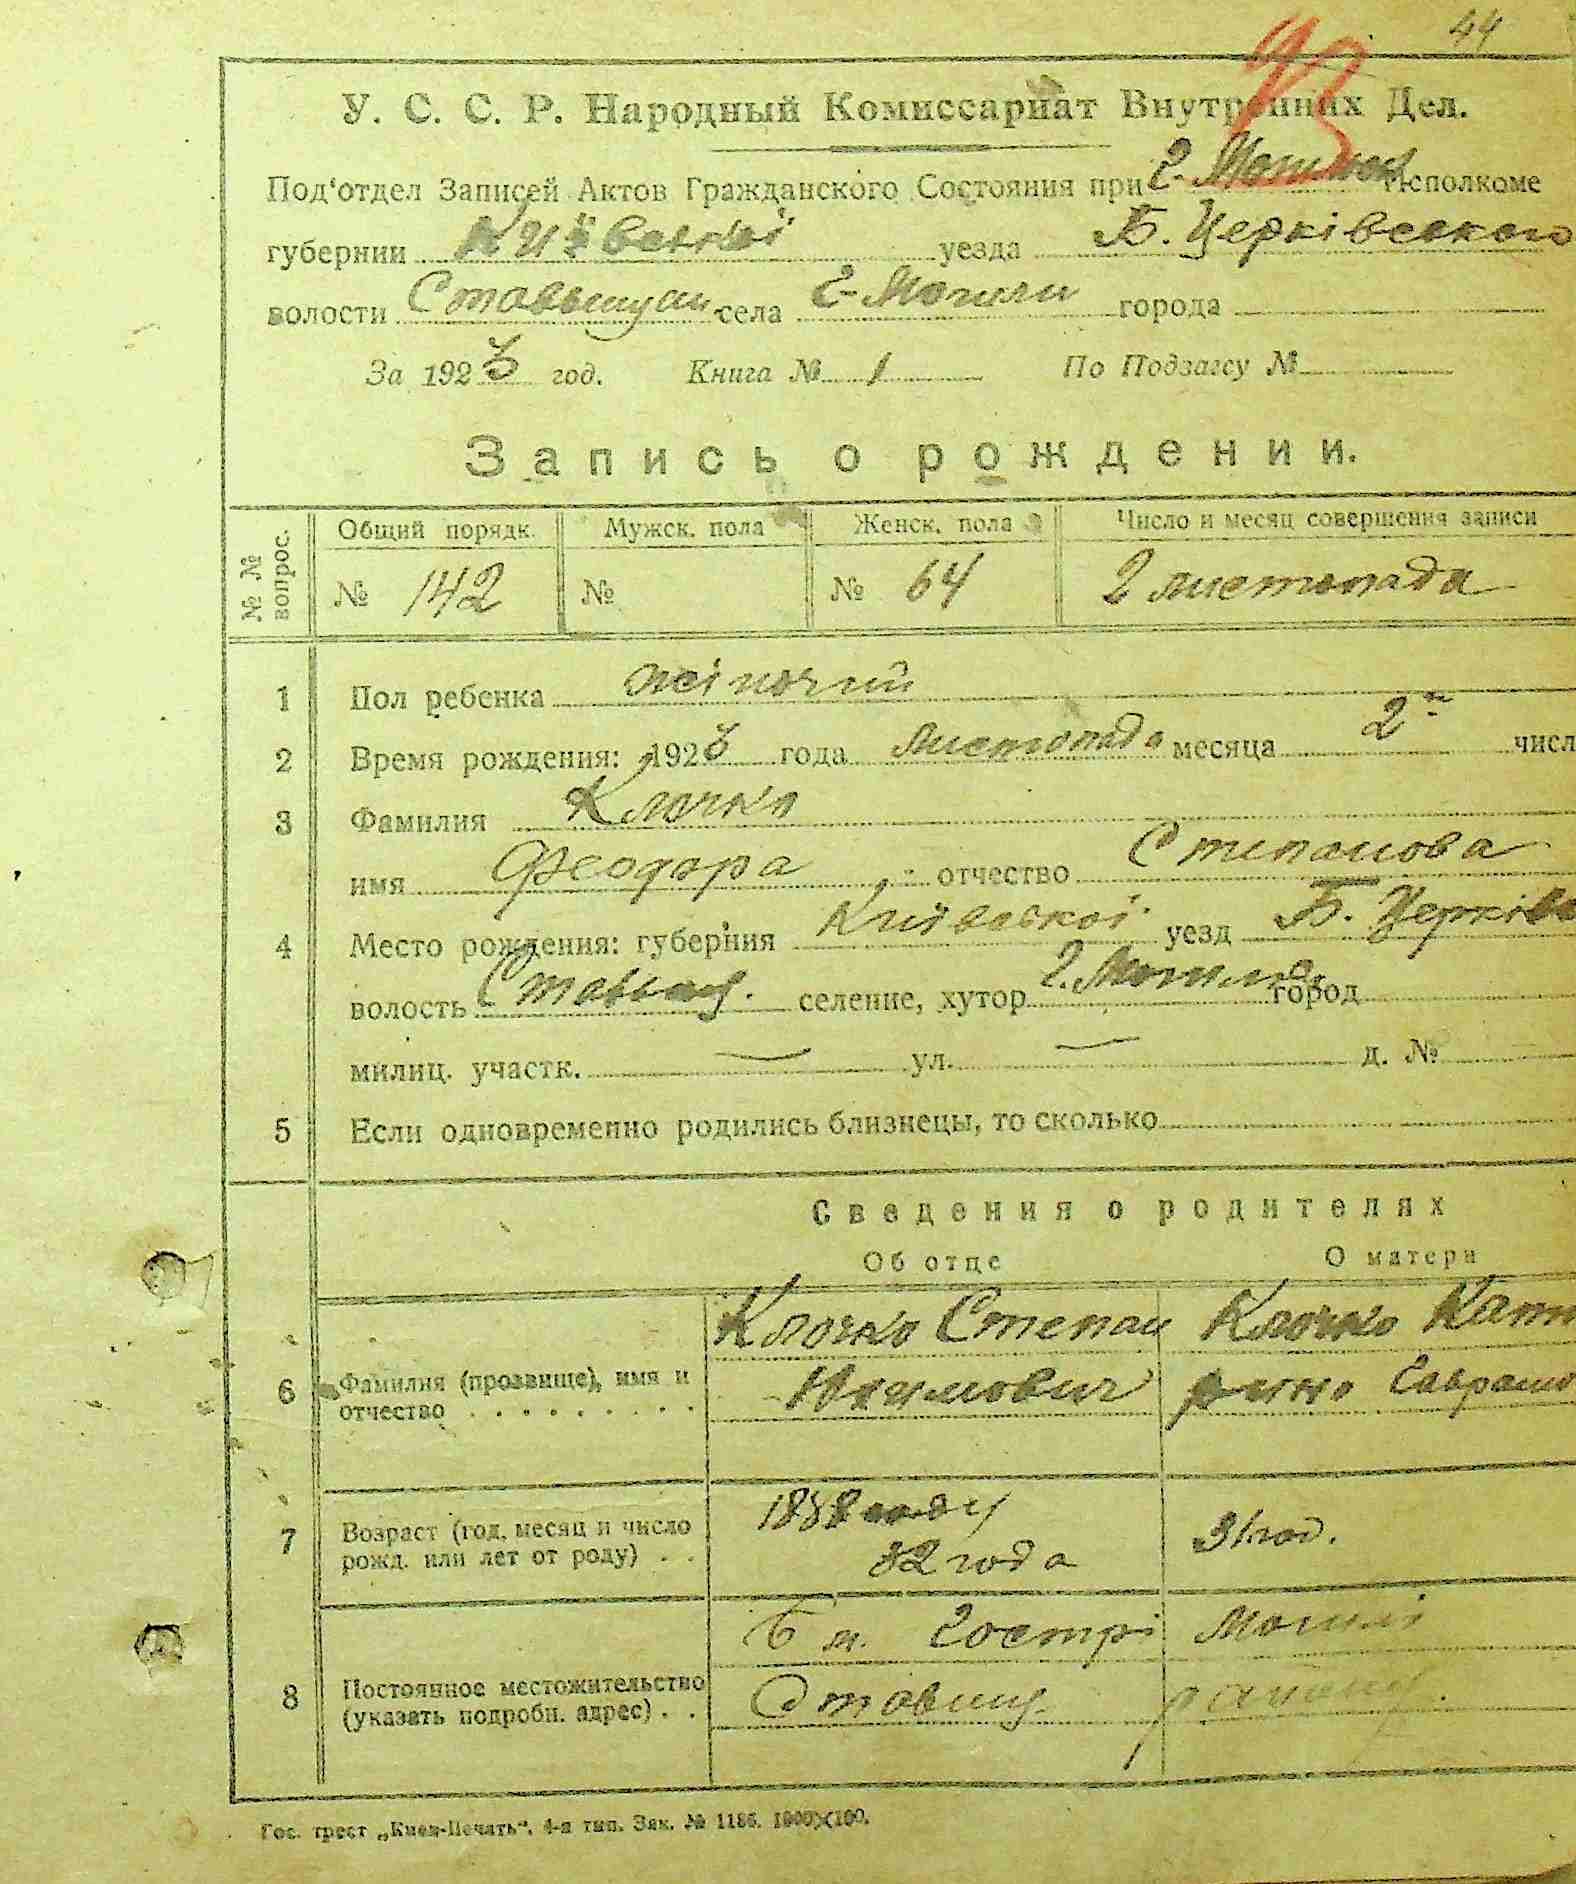 44
У. С. С. Р. Народный Комиссариат Внутренних Дел.
Под'отдел Записей Актов Гражданского Состояния при Г-Могилян Исполкоме
губернии Київської уезда Б. Церківського
волости Ставищан. села Г-Могили города
За 1923 год. Книга № 1 По Подзагсу №
Запись о рождении.
№ № вопрос. Общий порядк. Мужск. пола Женск. пола Число и месяц совершения записи
№ 142 № № 64 2 листопада
1 Пол ребенка жіночий
2 Время рождения: 1923 года Листопада месяца 2 числ
3 Фамилия Клочко
имя Феодора отчество Степанова
4 Место рождения: губерния Київської уезд Б. Церківс
волость Ставищ. селение, хутор Г. Могила город
милиц. участк. — ул. — д. №
5 Если одновременно родились близнецы, то сколько
Сведения о родителях
Об отце О матери
6 Фамилия (прозвище), имя и отчество Клочко Степан Клочко Кате
рина
7 Возраст (год, месяц и число рожд. или лет от роду) 32 года 31 год.
8 Постоянное местожительство (указать подробн. адрес) Гострі Могилі
Ставищ. району.
Гос. трест „Киев-Печать“. 4-я тип. Зак. № 1186. 1000×100.